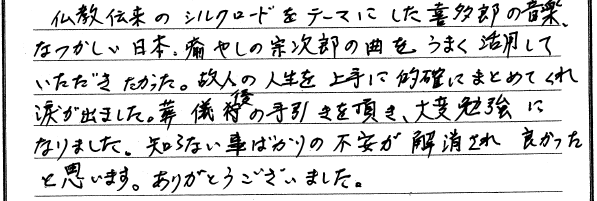 仏教伝来のシルクロードをテーマにした喜多郎の音楽、
なつかしい日本、癒やしの宗次郎の曲をうまく活用して
いただきたかった。故人の人生を上手に的確にまとめてくれ
涙が出ました。葬儀後の手引きを頂き、大変勉強に
なりました。知らない事ばかりの不安が解消され良かった
と思います。ありがとうございました。